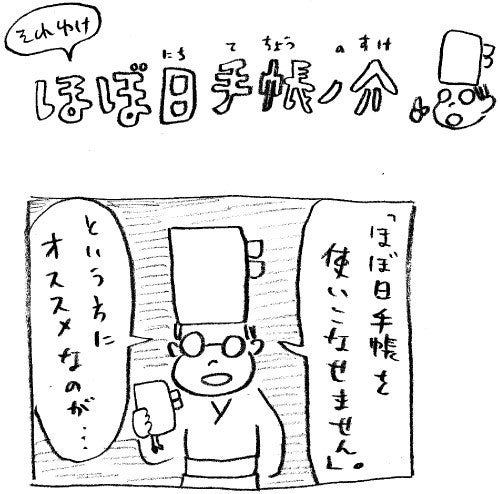 それゆけ
にち て ちょう の すけ
ほぼ日手帳ノ介
「ほぼ日手帳を
使いこなせません」。
という方に
オススメなのが…